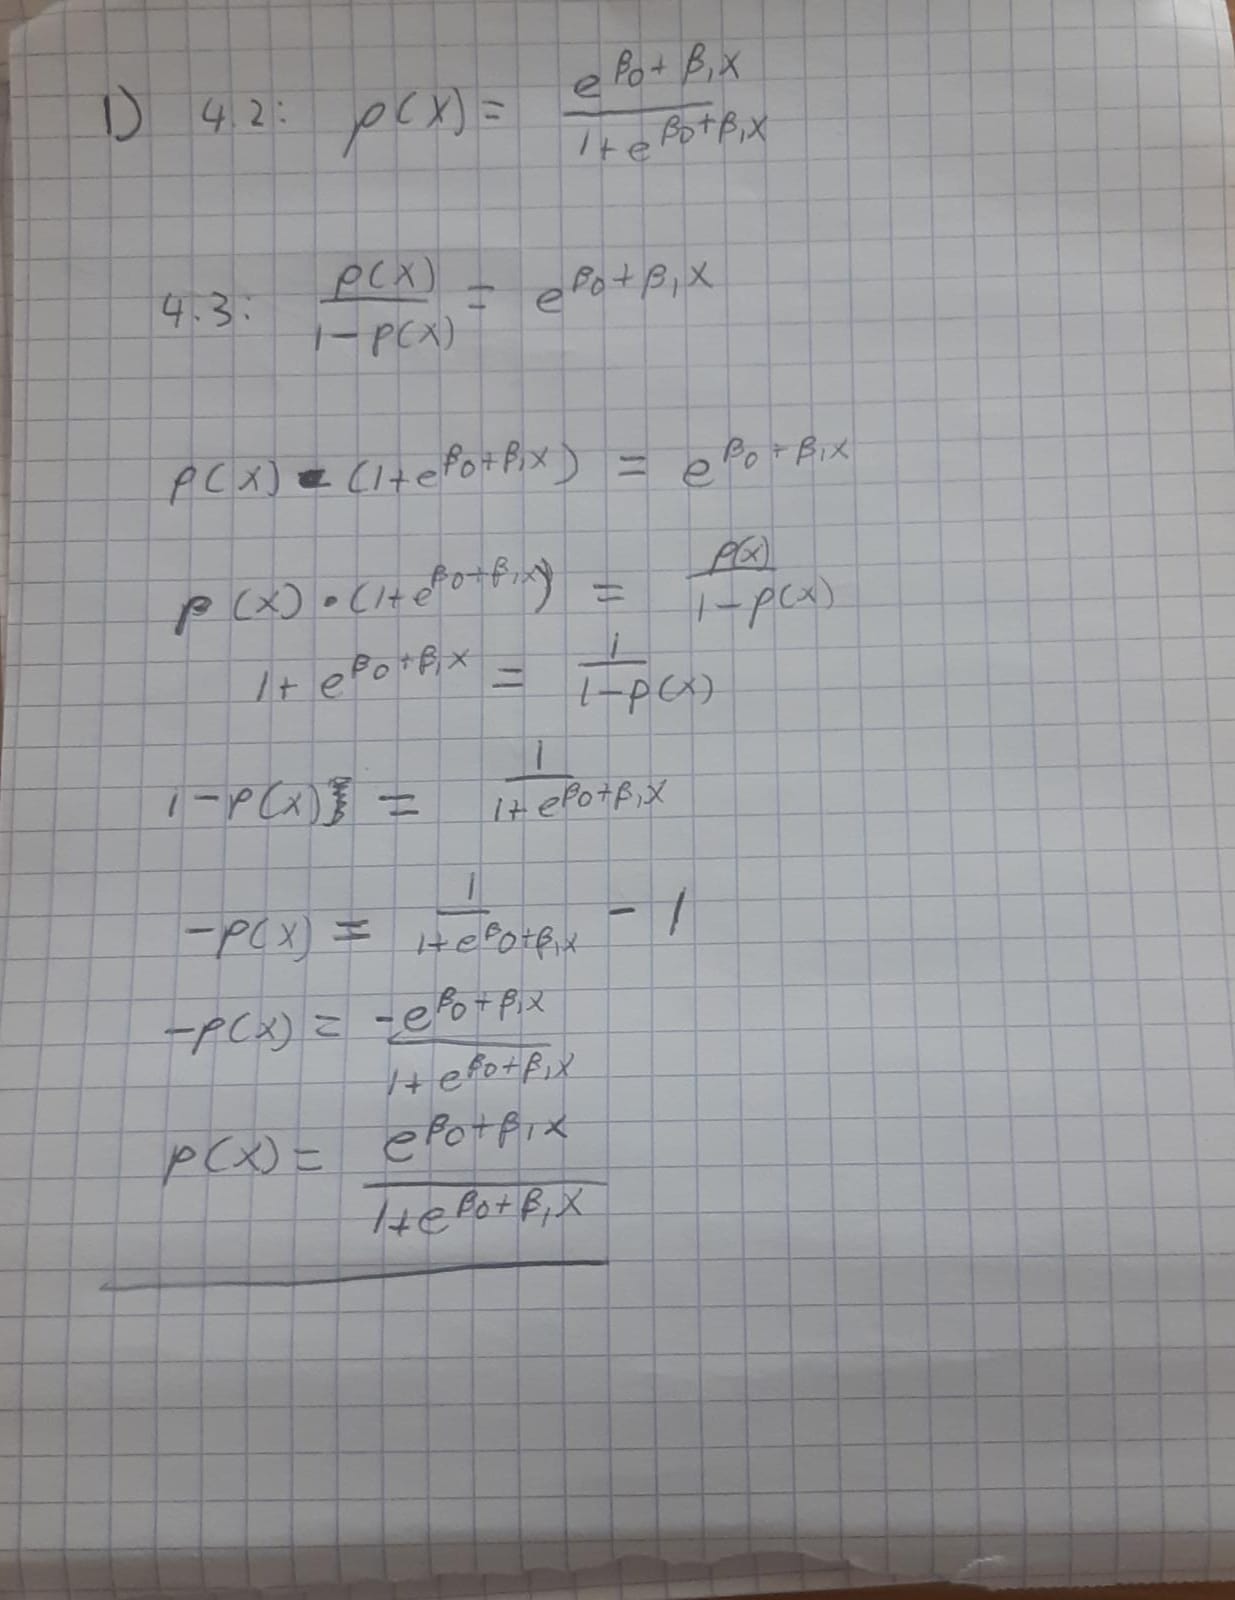 1) 4.2: p(X) = e^{β0 + β1X} / 1+e^{β0+β1X}
4.3: p(X) / 1-p(X) = e^{β0 + β1X}
p(X) · (1+e^{β0+β1X}) = e^{β0 + β1X}
p(X) · (1+e^{β0+β1X}) = p(X) / 1-p(X)
1+ e^{β0+β1X} = 1 / 1-p(X)
1-p(X) = 1 / 1+e^{β0+β1X}
-p(X) = 1 / 1+e^{β0+β1X} - 1
-p(X) = -e^{β0+β1X} / 1+e^{β0+β1X}
p(X) = e^{β0+β1X} / 1+e^{β0+β1X}